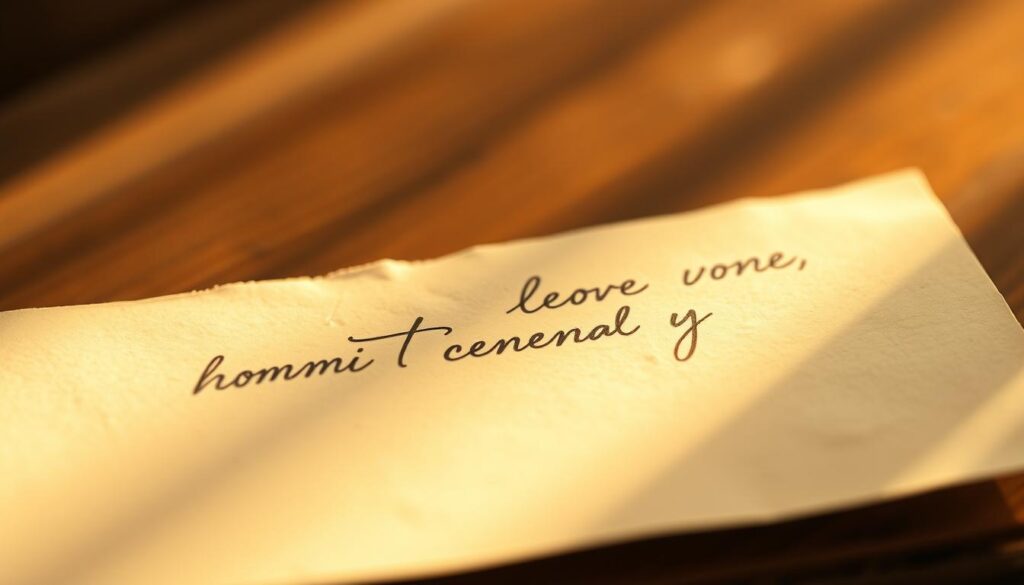 leove vone,
hommi T cenenal y